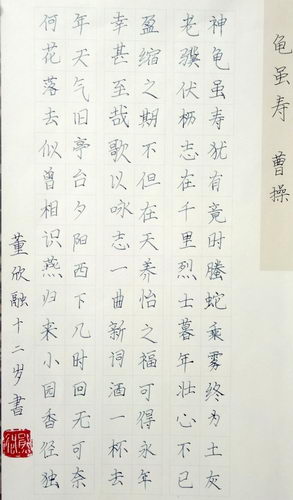 龟虽寿 曹操
神龟虽寿犹有竟时腾蛇乘雾终为土灰
老骥伏枥志在千里烈士暮年壮心不已
盈缩之期不但在天养怡之福可得永年
幸甚至哉歌以咏志一曲新词酒一杯去
年天气旧亭台夕阳西下几时回无可奈
何花落去似曾相识燕归来小园香径独
董欣融十二岁书